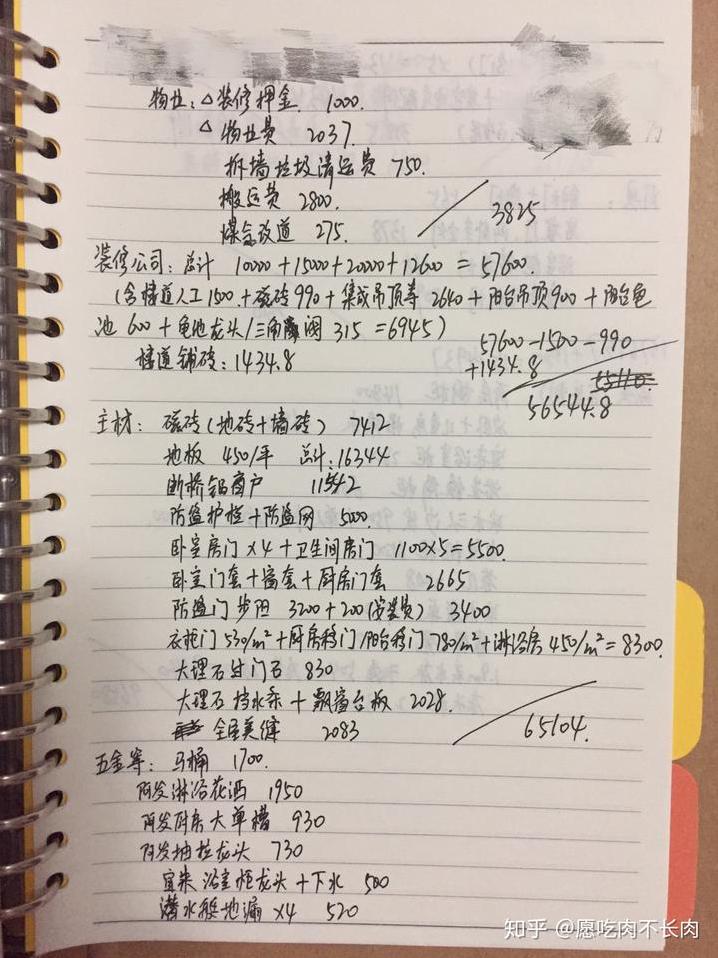 物业：△装修押金 1000.
△物业费 2037.
拆墙垃圾清运费 750.
搬运费 2800.
煤气改道 275.
3825
装修公司：总计 10000+15000+20000+12600 = 57600.
(含楼道人工1500+磁砖990+集成吊顶等2640+阳台吊顶900+阳台龟
池600+龟池龙头/三角阀 315 =6945)
57600-1500-990
+1434.8
楼道铺砖：1434.8
56544.8
主材：磁砖(地砖+墙砖) 7412
地板 450/平 总计：16344
断桥铝窗户 11542
防盗护栏+防盗网 5000.
卧室房门×4+卫生间房门 1100×5=5500.
卧室门套+窗套+厨房门套 2665
防盗门 步阳 3200+200(安装费) 3400
衣柜门530/m²+厨房移门/阳台移门780/m²+淋浴房450/m²=8300.
大理石过门石 830
大理石挡水条+飘窗台板 2028.
全屋美缝 2083
65104.
五金等：马桶 1700.
阿发淋浴花洒 1950
阿发厨房大单槽 930
阿发抽拉龙头 730
宜来浴室柜龙头+下水 500
潜水艇地漏×4 520
知乎 @愿吃肉不长肉